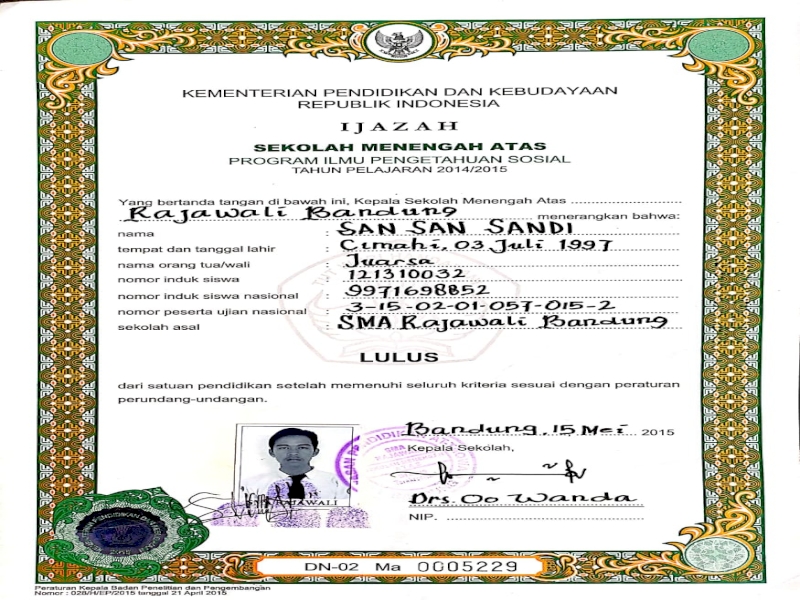 KEMENTERIAN PENDIDIKAN DAN KEBUDAYAAN
REPUBLIK INDONESIA
IJAZAH
SEKOLAH MENENGAH ATAS
PROGRAM ILMU PENGETAHUAN SOSIAL
TAHUN PELAJARAN 2014/2015
Yang bertanda tangan di bawah ini, Kepala Sekolah Menengah Atas
Rajawali Bandung menerangkan bahwa:
nama : SAN SAN SANDI
tempat dan tanggal lahir : Cimahi, 03 Juli 1997
nama orang tua/wali : Juarsa
nomor induk siswa : 121310032
nomor induk siswa nasional : 9971698852
nomor peserta ujian nasional : 3-15-02-01-057-015-2
sekolah asal : SMA Rajawali Bandung
LULUS
dari satuan pendidikan setelah memenuhi seluruh kriteria sesuai dengan peraturan
perundang-undangan.
Bandung, 15 Mei 2015
Kepala Sekolah,
Drs. Oo Wanda
NIP.
DN-02 Ma 0005229
Peraturan Kepala Badan Penelitian dan Pengembangan
Nomor : 028/H/EP/2015 tanggal 21 April 2015